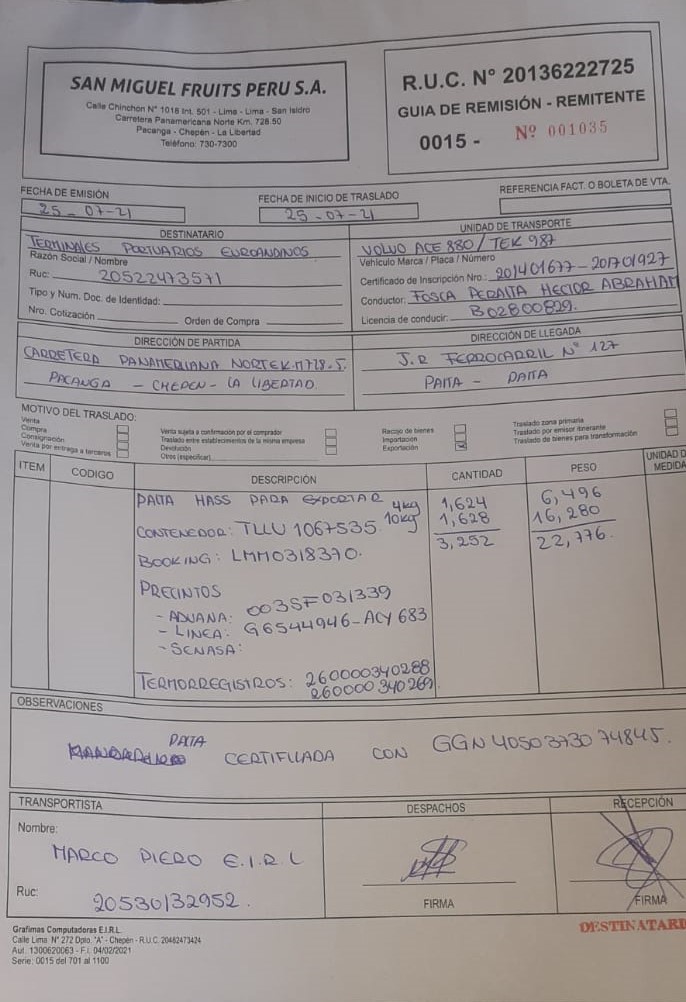 SAN MIGUEL FRUITS PERU S.A.
Calle Chinchon N° 1018 Int. 501 - Lima - Lima - San Isidro
Carretera Panamericana Norte Km. 728.50
Pacanga - Chepén - La Libertad
Teléfono: 730-7300
R.U.C. N° 20136222725
GUIA DE REMISIÓN - REMITENTE
0015 - Nº 001035
FECHA DE EMISIÓN
25-07-21
FECHA DE INICIO DE TRASLADO
25-07-21
REFERENCIA FACT. O BOLETA DE VTA.
DESTINATARIO
TERMINALES PORTUARIOS EUROANDINOS
Razón Social / Nombre
Ruc: 20522473571
Tipo y Num. Doc. de Identidad:
Nro. Cotización Orden de Compra
UNIDAD DE TRANSPORTE
VOLVO ACE 880/ TEK 987
Vehículo Marca / Placa / Número
Certificado de Inscripción Nro.: 201401677-201701927
Conductor: FOSCA PERALTA HECTOR ABRAHAM
Licencia de conducir: B02800829.
DIRECCIÓN DE PARTIDA
CARRETERA PANAMERIANA NORTE K.M 728.5.
PACANGA - CHEPEN - LA LIBERTAD
DIRECCIÓN DE LLEGADA
J.R FERROCARRIL N° 127
PAITA - PAITA
MOTIVO DEL TRASLADO:
Venta
Compra
Consignación
Venta por entrega a terceros
Venta sujeta a confirmación por el comprador
Traslado entre establecimientos de la misma empresa
Devolución
Otros (especificar)
Recojo de bienes
Importación
Exportación
Traslado zona primaria
Traslado por emisor itinerante
Traslado de bienes para transformación
ITEM CODIGO DESCRIPCIÓN CANTIDAD PESO UNIDAD D MEDIDA
PALTA HASS PARA EXPORTAR 4kg 1,624 6,496
CONTENEDOR: TLLU 1067535 10kg 1,628 16,280
3,252 22,776.
BOOKING: LMM0318370.
PRECINTOS
- ADUANA: 003SF031339
- LINEA: G6544946-ACY 683
- SENASA:
TERMORREGISTROS: 260000340288
260000340269
OBSERVACIONES
PALTA CERTIFICADA CON GGN 4050373074845.
TRANSPORTISTA
Nombre:
MARCO PIERO E.I.R.L
Ruc: 20530132952.
DESPACHOS
FIRMA
RECEPCIÓN
FIRMA
Grafimas Computadoras E.I.R.L.
Calle Lima N° 272 Dpto. "A" - Chepén - R.U.C. 20482473424
Aut. 1300620063 - F.I. 04/02/2021
Serie: 0015 del 701 al 1100
DESTINATARI